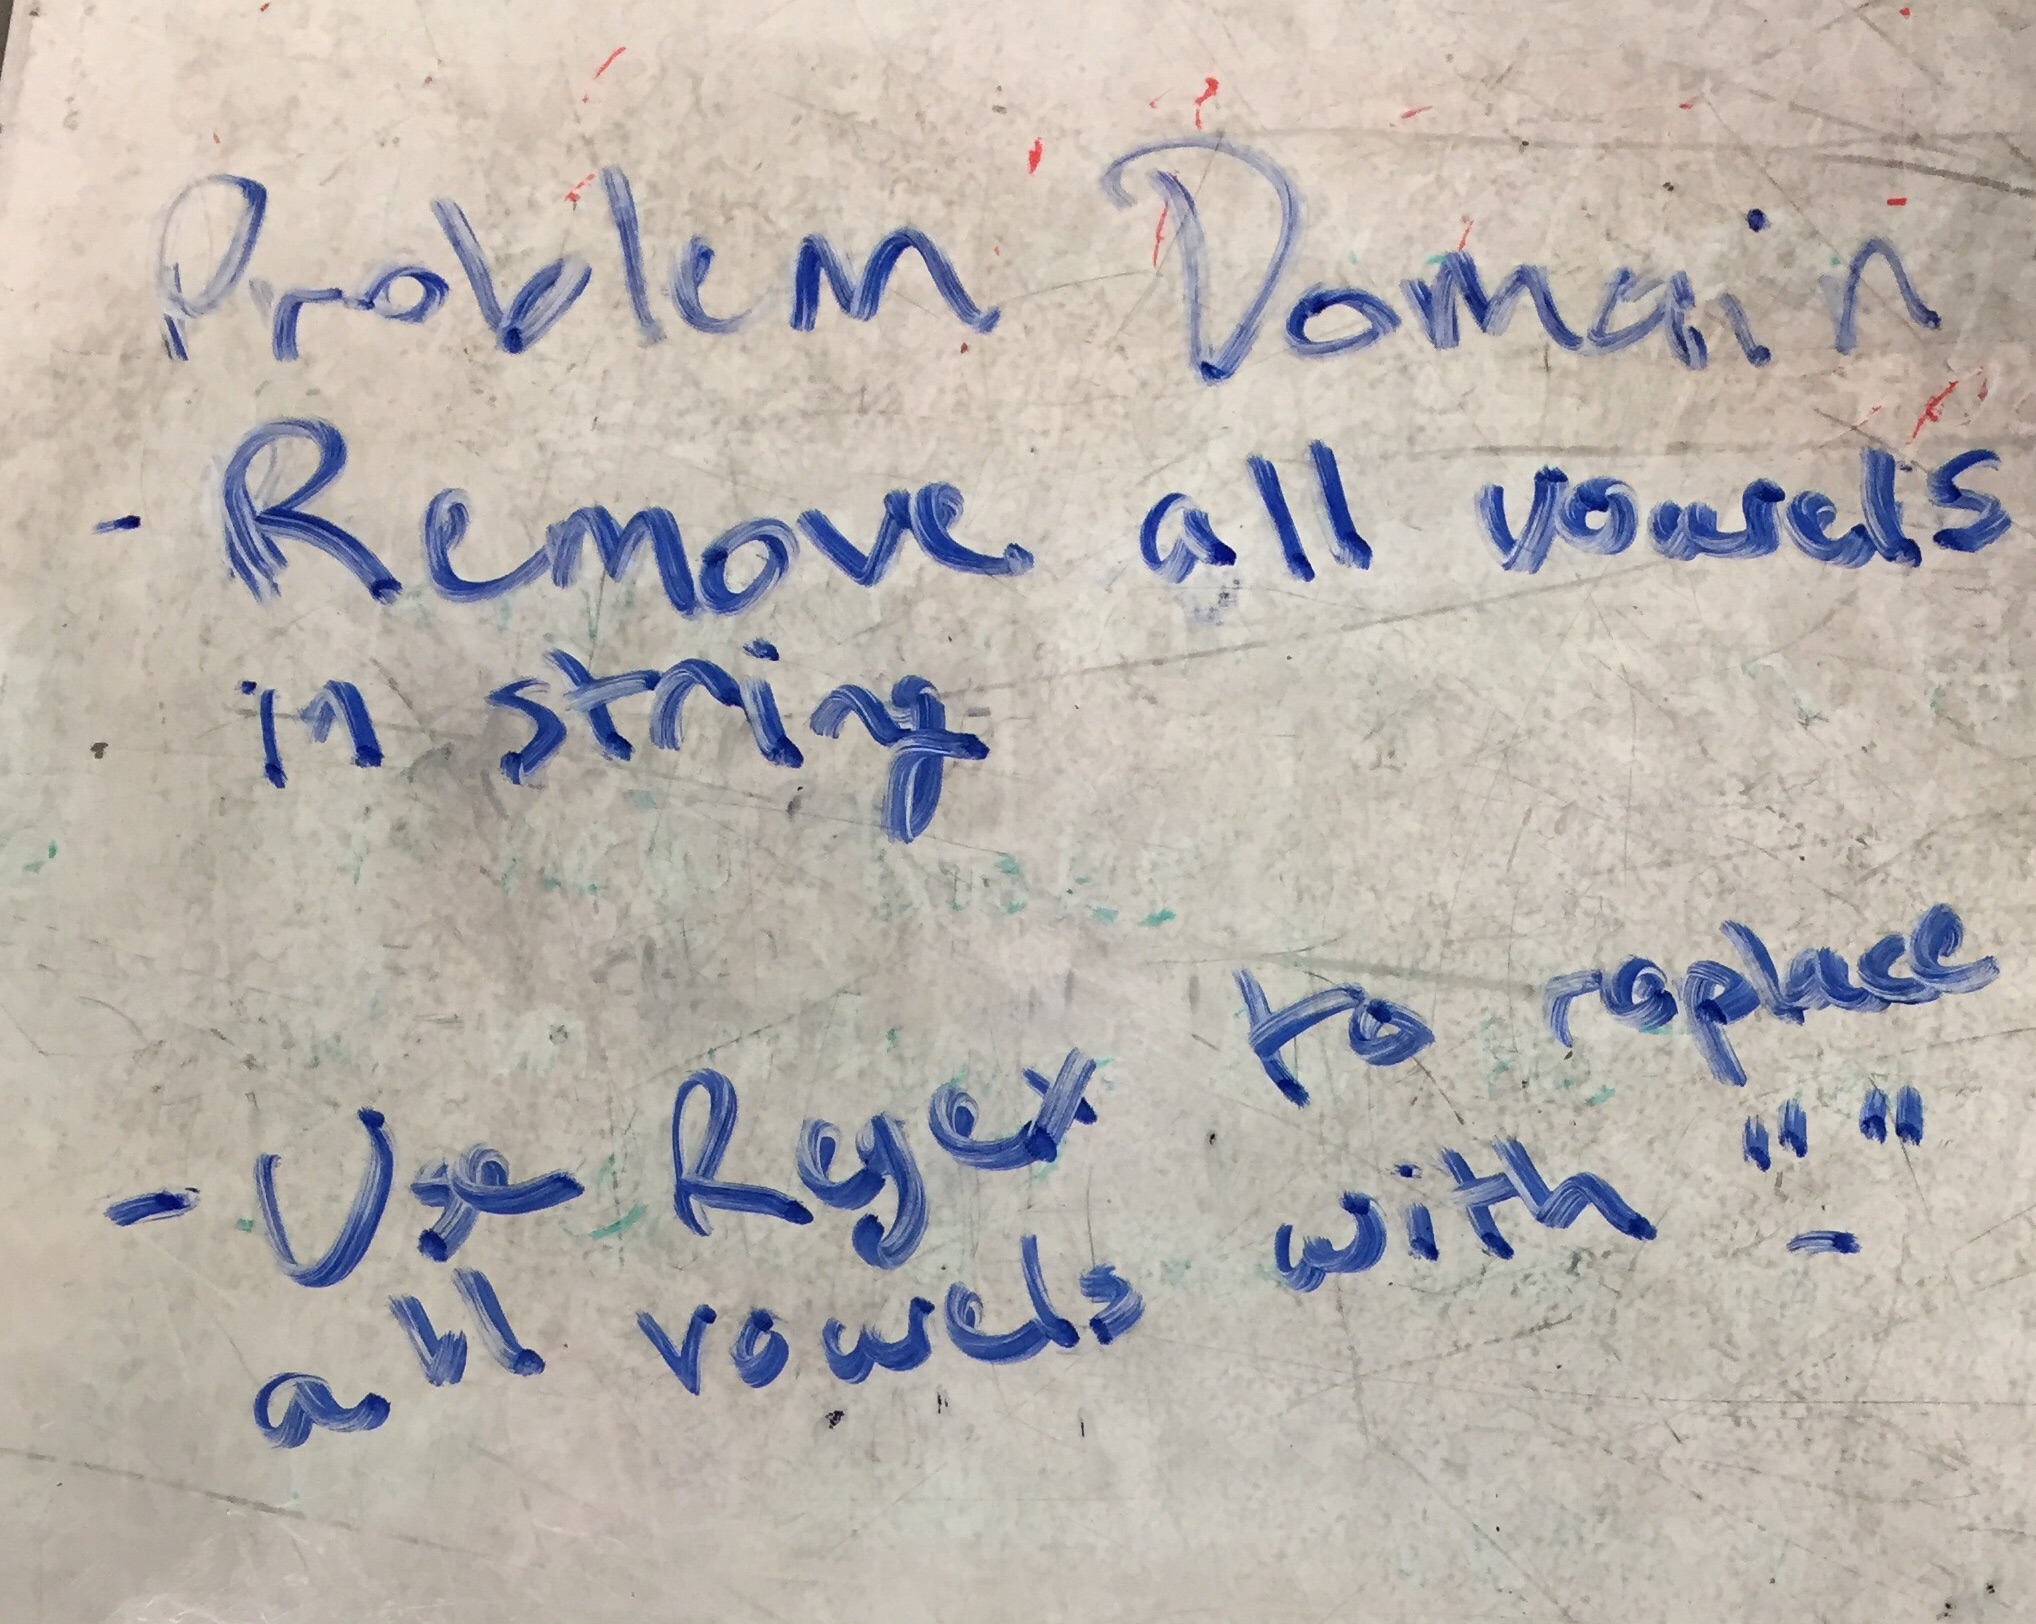 Problem Domain
- Remove all vowels
in string
- Use Regex to replace
all vowels with " "